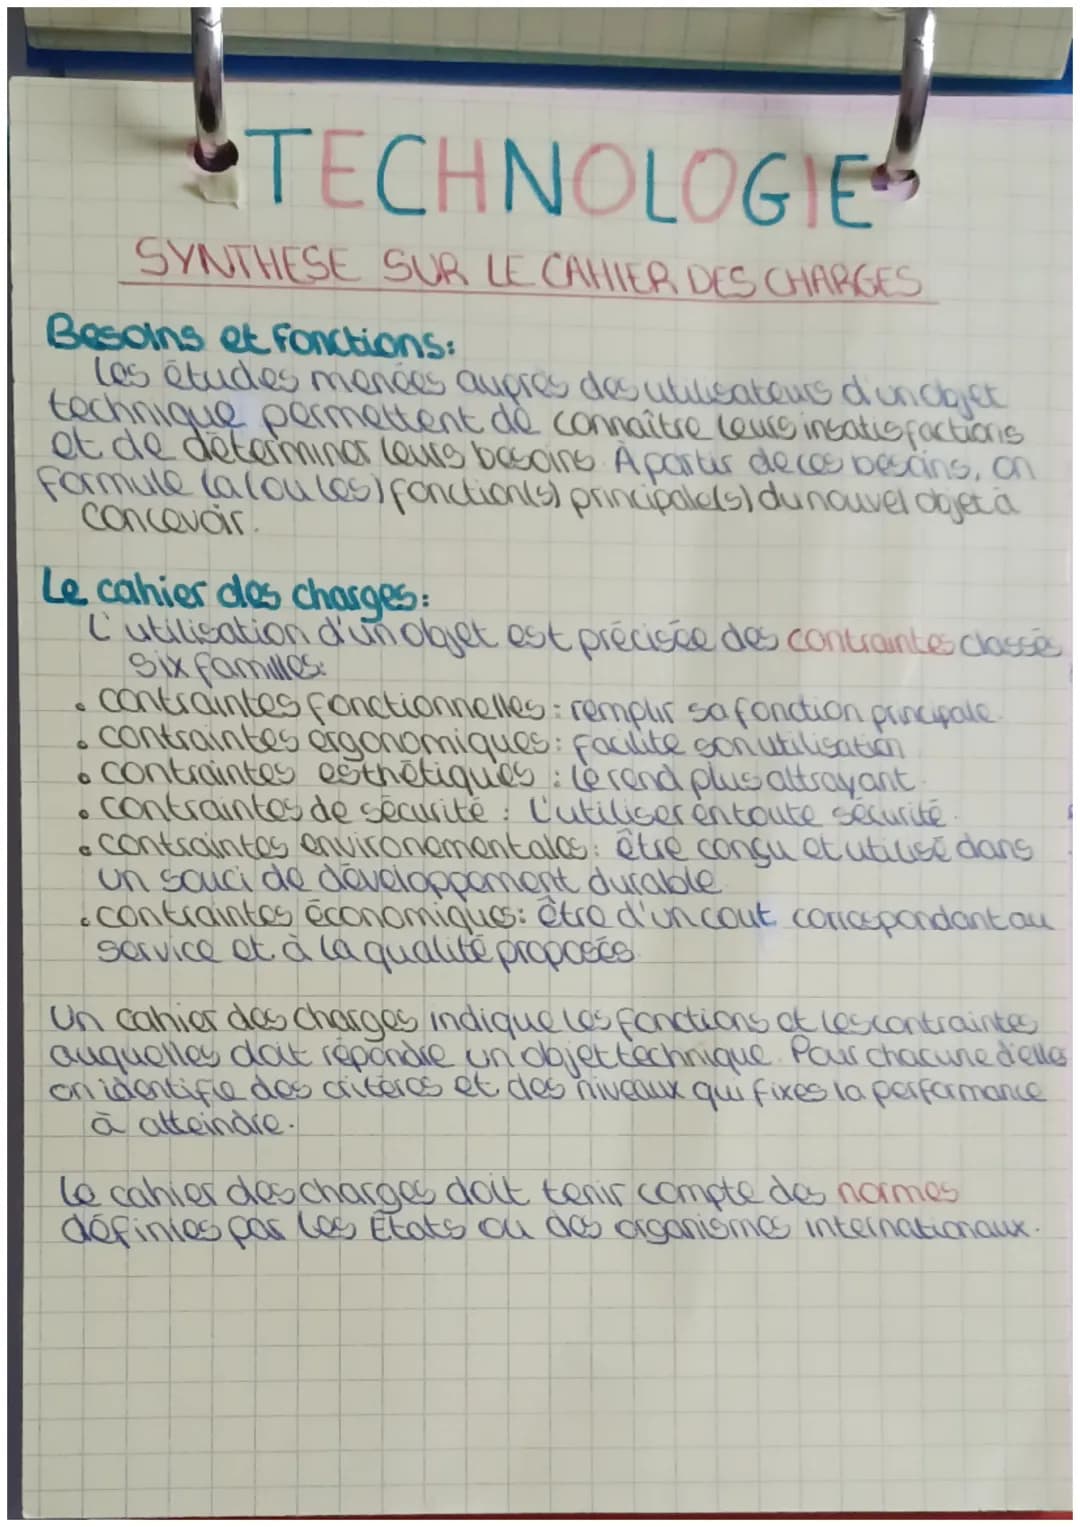 TECHNOLOGIE
SYNTHESE SUR LE CAHIER DES CHARGES
Besoins et fonctions:
Les études menées auprès des utilisateurs d'un objet
technique permettent de connaître leurs insatisfactions
et de déterminer leurs besoins. À partir de ces besoins, on
formule la (ou les) fonction(s) principale(s) du nouvel objet à
concevoir.
Le cahier des charges:
L'utilisation d'un objet est précisée des contraintes classés
six familles:
• contraintes fonctionnelles : remplir sa fonction principale.
• contraintes ergonomiques : facilite son utilisation
• contraintes esthétiques : le rend plus attrayant.
• contraintes de sécurité : L'utiliser en toute sécurité.
• contraintes environementales : être conçu et utilisé dans
un souci de développement durable.
• contraintes économiques : être d'un cout correspondant au
service et à la qualité proposés.
Un cahier des charges indique les fonctions et les contraintes
auquelles doit répondre un objet technique. Pour chacune d'elles
on identifie des critères et des niveaux qui fixes la performance
à atteindre.
Le cahier des charges doit tenir compte des normes
définies par les États ou des organismes internationaux.